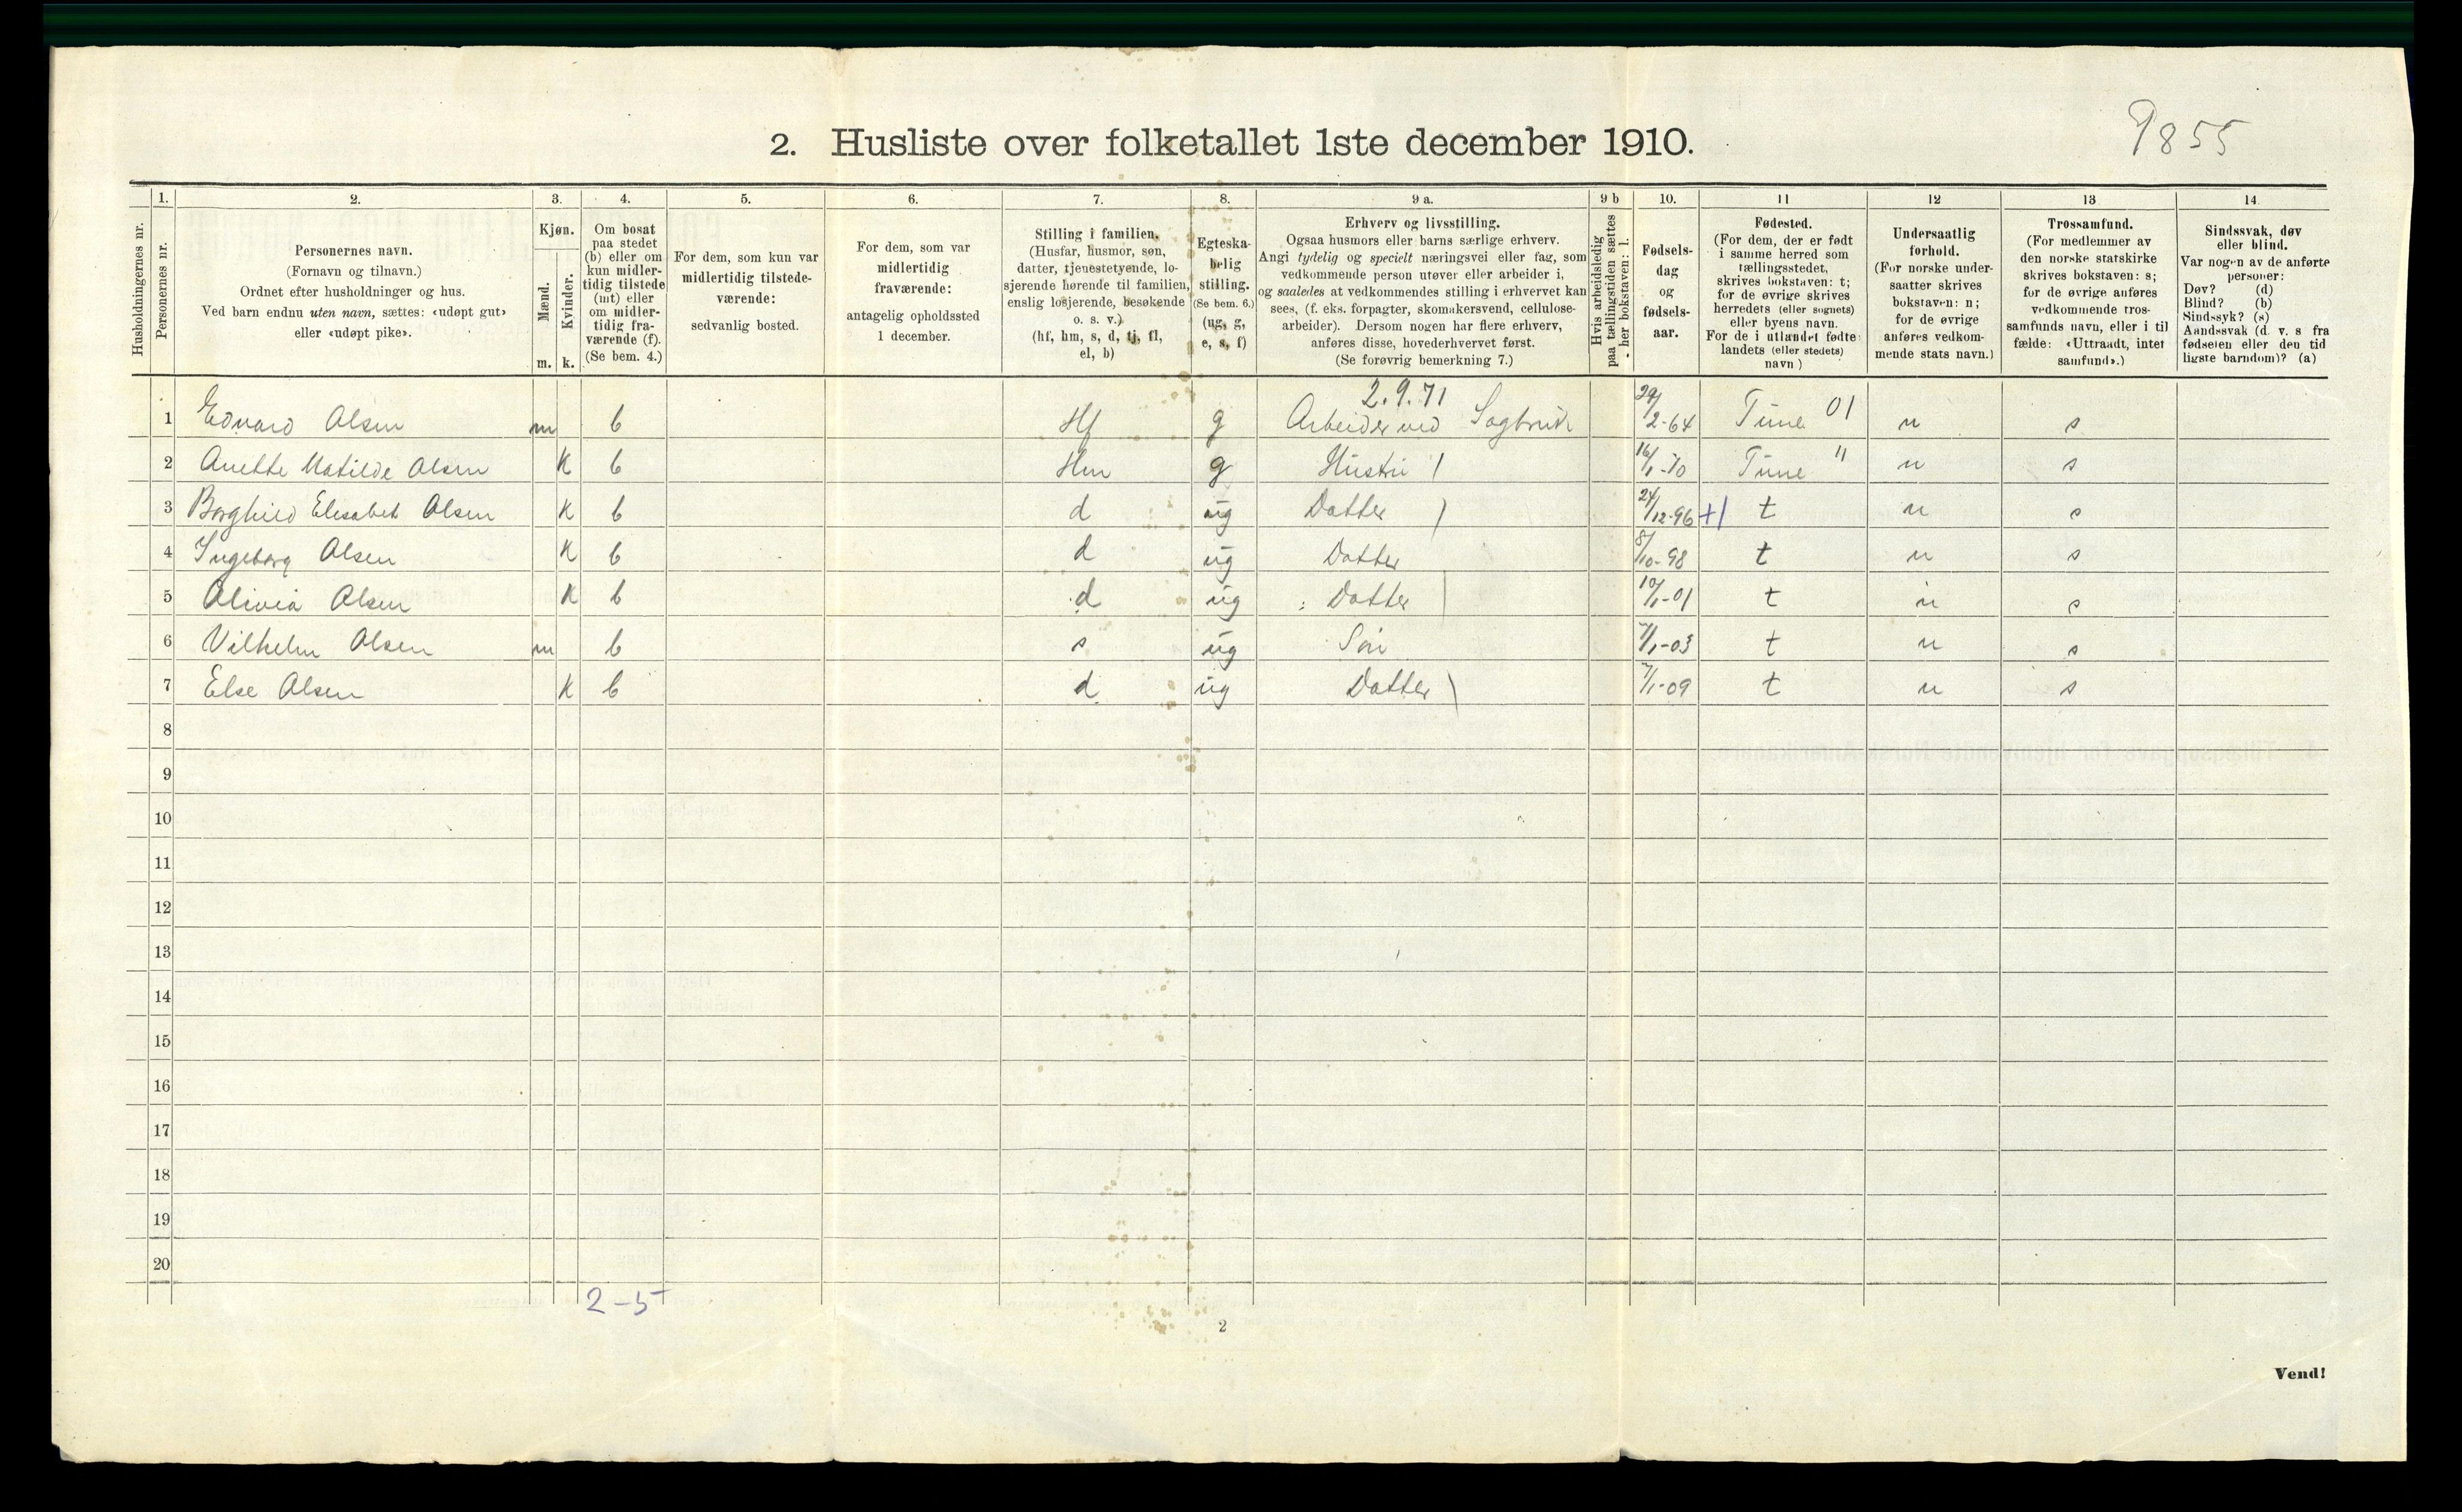 9855
2. Husliste over folketallet 1ste december 1910.
Husholdningernes nr.
1. Personernes nr.
2. Personernes navn.
(Fornavn og tilnavn.)
Ordnet efter husholdninger og hus.
Ved barn endnu uten navn, sættes: «udøpt gut»
eller «udøpt pike».
3. Kjøn.
Mænd. m.
Kvinder. k.
4. Om bosat
paa stedet
(b) eller om
kun midler-
tidig tilstede
(mt) eller
om midler-
tidig fra-
værende (f).
(Se bem. 4.)
5. For dem, som kun var
midlertidig tilstede-
værende:
sedvanlig bosted.
6. For dem, som var
midlertidig
fraværende:
antagelig opholdssted
1 december.
7. Stilling i familien.
(Husfar, husmor, søn,
datter, tjenestetyende, lo-
sjerende hørende til familien,
enslig losjerende, besøkende
o. s. v.)
(hf, hm, s, d, tj, fl,
el, b)
8. Egteska-
belig
stilling.
(Se bem. 6.)
(ug, g,
e, s, f)
9 a. Erhverv og livsstilling.
Ogsaa husmors eller barns særlige erhverv.
Angi tydelig og specielt næringsvei eller fag, som
vedkommende person utøver eller arbeider i,
og saaledes at vedkommendes stilling i erhvervet kan
sees, (f. eks. forpagter, skomakersvend, cellulose-
arbeider). Dersom nogen har flere erhverv,
anføres disse, hovederhvervet først.
(Se forøvrig bemerkning 7.)
9 b Hvis arbeidsledig
paa tællingstiden sættes
her bokstaven: l.
10. Fødsels-
dag
og
fødsels-
aar.
11 Fødested.
(For dem, der er født
i samme herred som
tællingsstedet,
skrives bokstaven: t;
for de øvrige skrives
herredets (eller sognets)
eller byens navn.
For de i utlandet fødte:
landets (eller stedets)
navn)
12 Undersaatlig
forhold.
(For norske under-
saatter skrives
bokstaven: n;
for de øvrige
anføres vedkom-
mende stats navn.)
13 Trossamfund.
(For medlemmer av
den norske statskirke
skrives bokstaven: s;
for de øvrige anføres
vedkommende tros-
samfunds navn, eller i til
fælde: «Uttraadt, intet
samfund».)
14 Sindssvak, døv
eller blind.
Var nogen av de anførte
personer:
Døv? (d)
Blind? (b)
Sindssyk? (s)
Aandssvak (d. v. s fra
fødselen eller den tid
ligste barndom)? (a)
2.9.71
1 Edvard Olsen m b Hf g Arbeider ved Sagbruk 29/2-64 Tune 01 n s
2 Anette Matilde Olsen K b Hm g Hustru 16/1-70 Tune " n s
3 Borghild Elisabet Olsen K b d ug Datter 24/12-96 t n s
4 Ingeborg Olsen K b d ug Datter 8/10-98 t n s
5 Olivia Olsen K b d ug Datter 10/1-01 t n s
6 Vilhelm Olsen m b s ug Søn 7/1-03 t n s
7 Else Olsen K b d ug Datter 7/1-09 t n s
8
9
10
11
12
13
14
15
16
17
18
19
20
2-5
2
Vend!